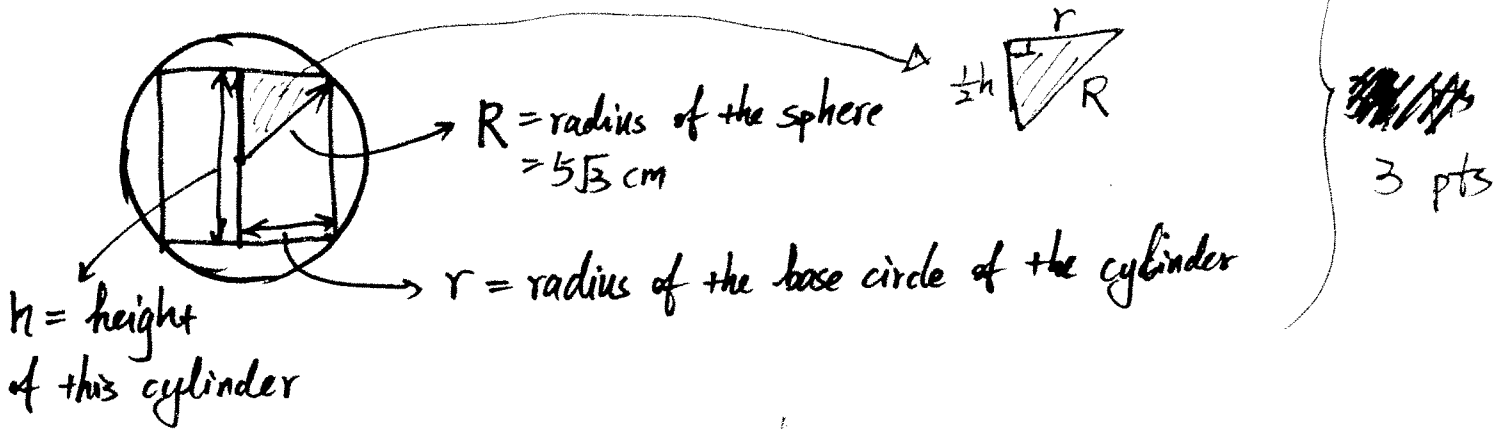 r
½h
R
R = radius of the sphere
= 5√3 cm
3 pts
r = radius of the base circle of the cylinder
h = height
of this cylinder